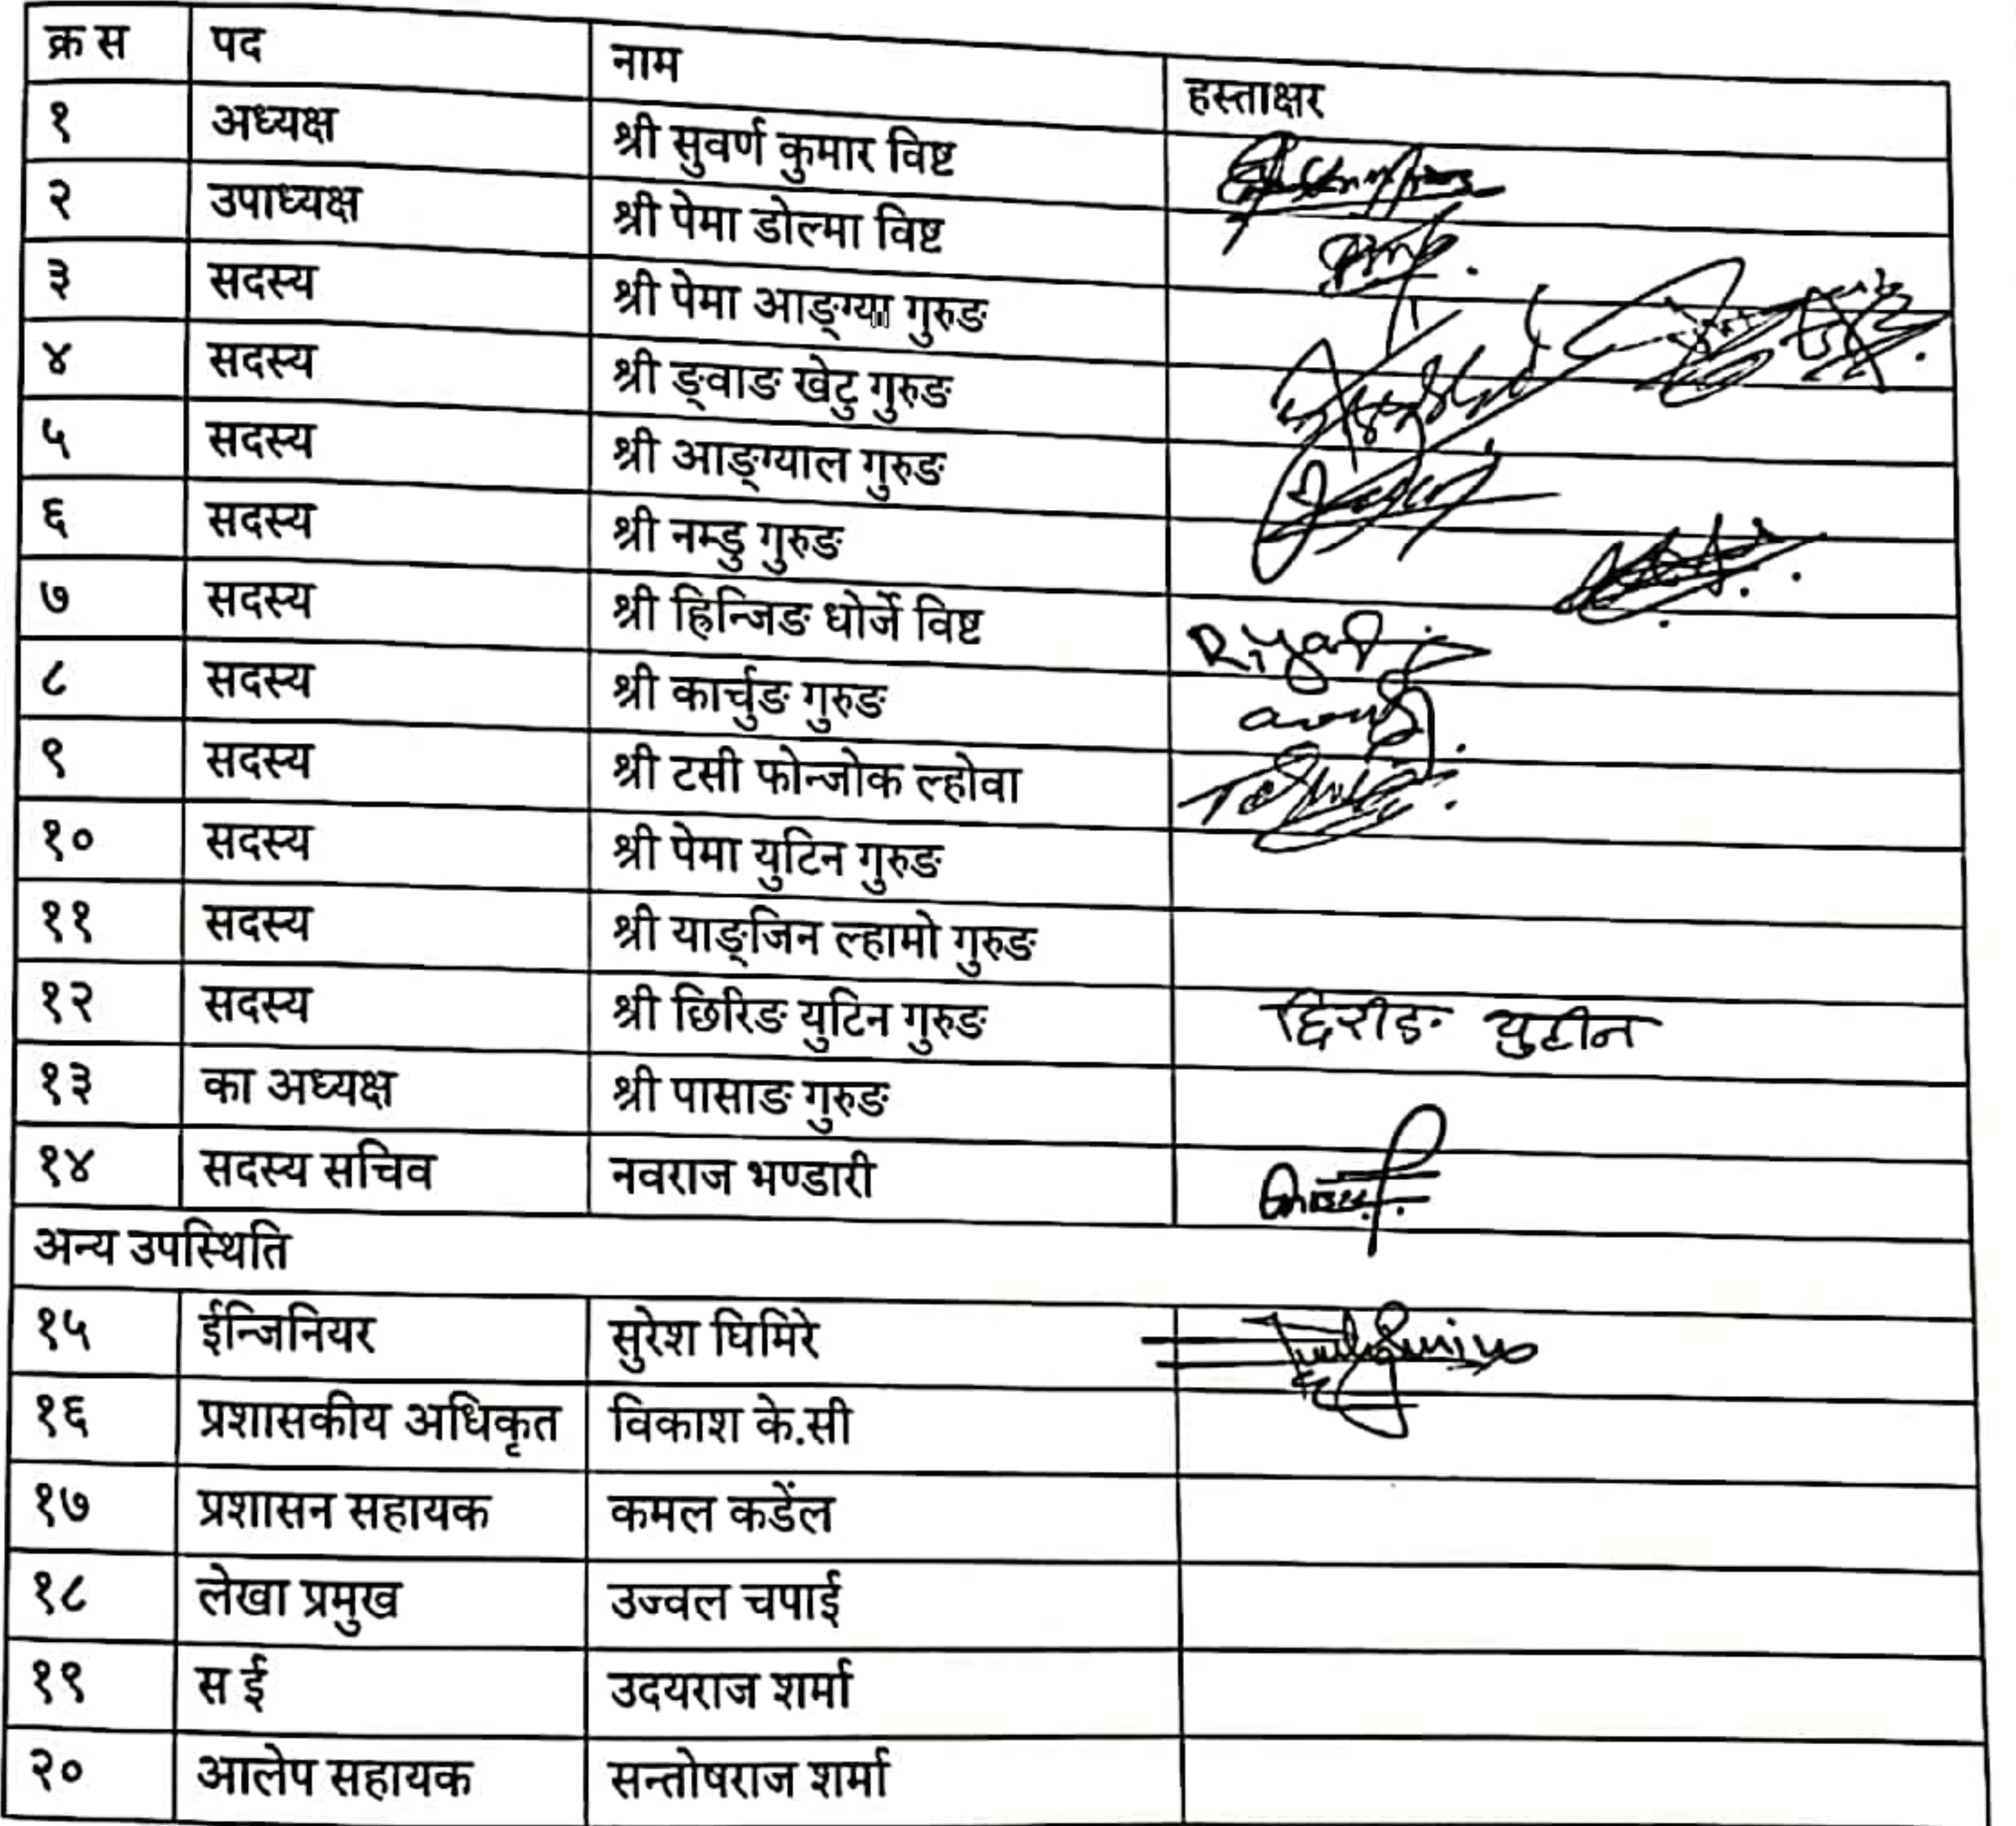 क्र स पद नाम हस्ताक्षर
१ अध्यक्ष श्री सुवर्ण कुमार विष्ट
२ उपाध्यक्ष श्री पेमा डोल्मा विष्ट
३ सदस्य श्री पेमा आङ्ग्या गुरुङ
४ सदस्य श्री ङ्वाङ खेटु गुरुङ
५ सदस्य श्री आङ्ग्याल गुरुङ
६ सदस्य श्री नम्डु गुरुङ
७ सदस्य श्री ह्रिन्जिङ धोर्जे विष्ट
८ सदस्य श्री कार्चुङ गुरुङ
९ सदस्य श्री टसी फोन्जोक ल्होवा
१० सदस्य श्री पेमा युटिन गुरुङ
११ सदस्य श्री याङ्जिन ल्हामो गुरुङ
१२ सदस्य श्री छिरिङ युटिन गुरुङ छिरीङ युटीन
१३ का अध्यक्ष श्री पासाङ गुरुङ
१४ सदस्य सचिव नवराज भण्डारी
अन्य उपस्थिति
१५ ईन्जिनियर सुरेश घिमिरे
१६ प्रशासकीय अधिकृत विकाश के.सी
१७ प्रशासन सहायक कमल कडेंल
१८ लेखा प्रमुख उज्वल चपाई
१९ स ई उदयराज शर्मा
२० आलेप सहायक सन्तोषराज शर्मा